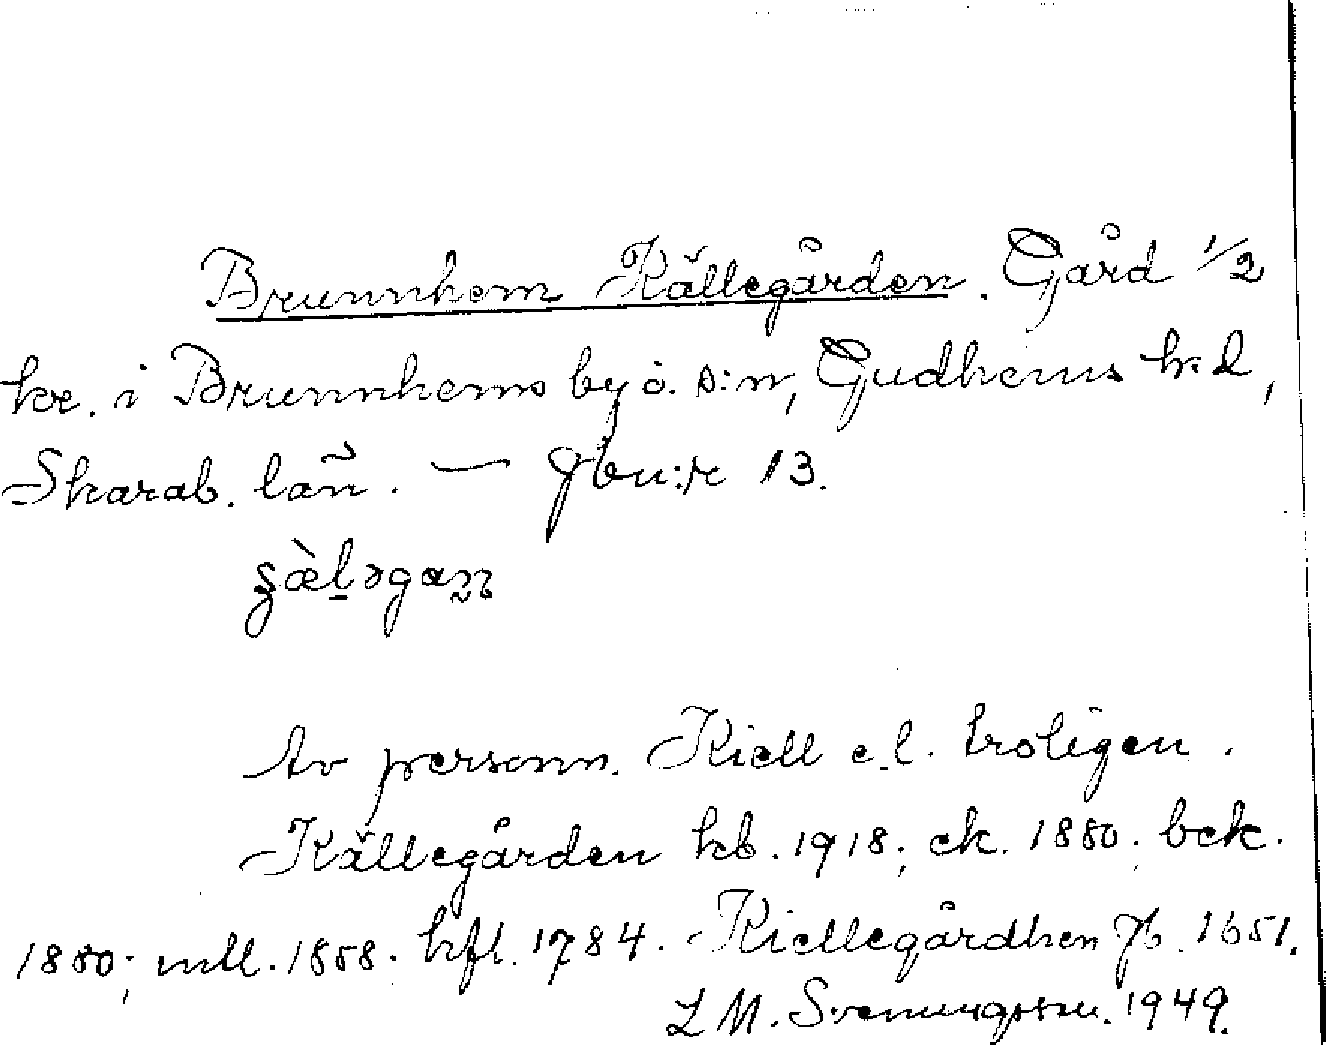 Brunnhem Källegården. Gård 1/2
kr. i Brunnhems by o. s:n, Gudhems h:d,
Skarab. län. — Jbn:r 13.
Av personn. Kiell e.l. troligen.
Källegården kb. 1918; ek. 1880; bek.
1880; mtl. 1858. hfl. 1784. Kiellegårdhen Jb. 1651.
L M. Svenungsson. 1949.